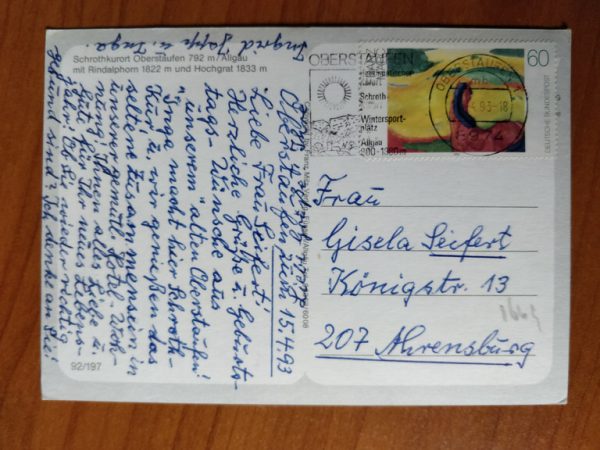 Schrothkurort Oberstaufen 792 m / Allgäu
mit Rindalphorn 1822 m und Hochgrat 1833 m
Oberstaufen, 15.4.93
Liebe Frau Seifert!
Herzliche Grüße u. Geburts-
tags-Wünsche aus
"unserem" alten Oberstaufen!
Inga macht hier Schroth-
Kur u. wir genießen das
seltene Zusammensein in
gemütl. Hotel.
Ihnen alles Liebe u.
Gute für Ihr neues Lebens-
jahr. Ob Sie wieder richtig
gesund sind? Ich denke an Sie!
Ingrid u. Inga.
92/197
OBERSTAUFEN
Schroth-
Wintersport-
platz
Allgäu
OBERSTAUFEN
8974
60
DEUTSCHE BUNDESPOST
Frau
Gisela Seifert
Königstr. 13
207 Ahrensburg